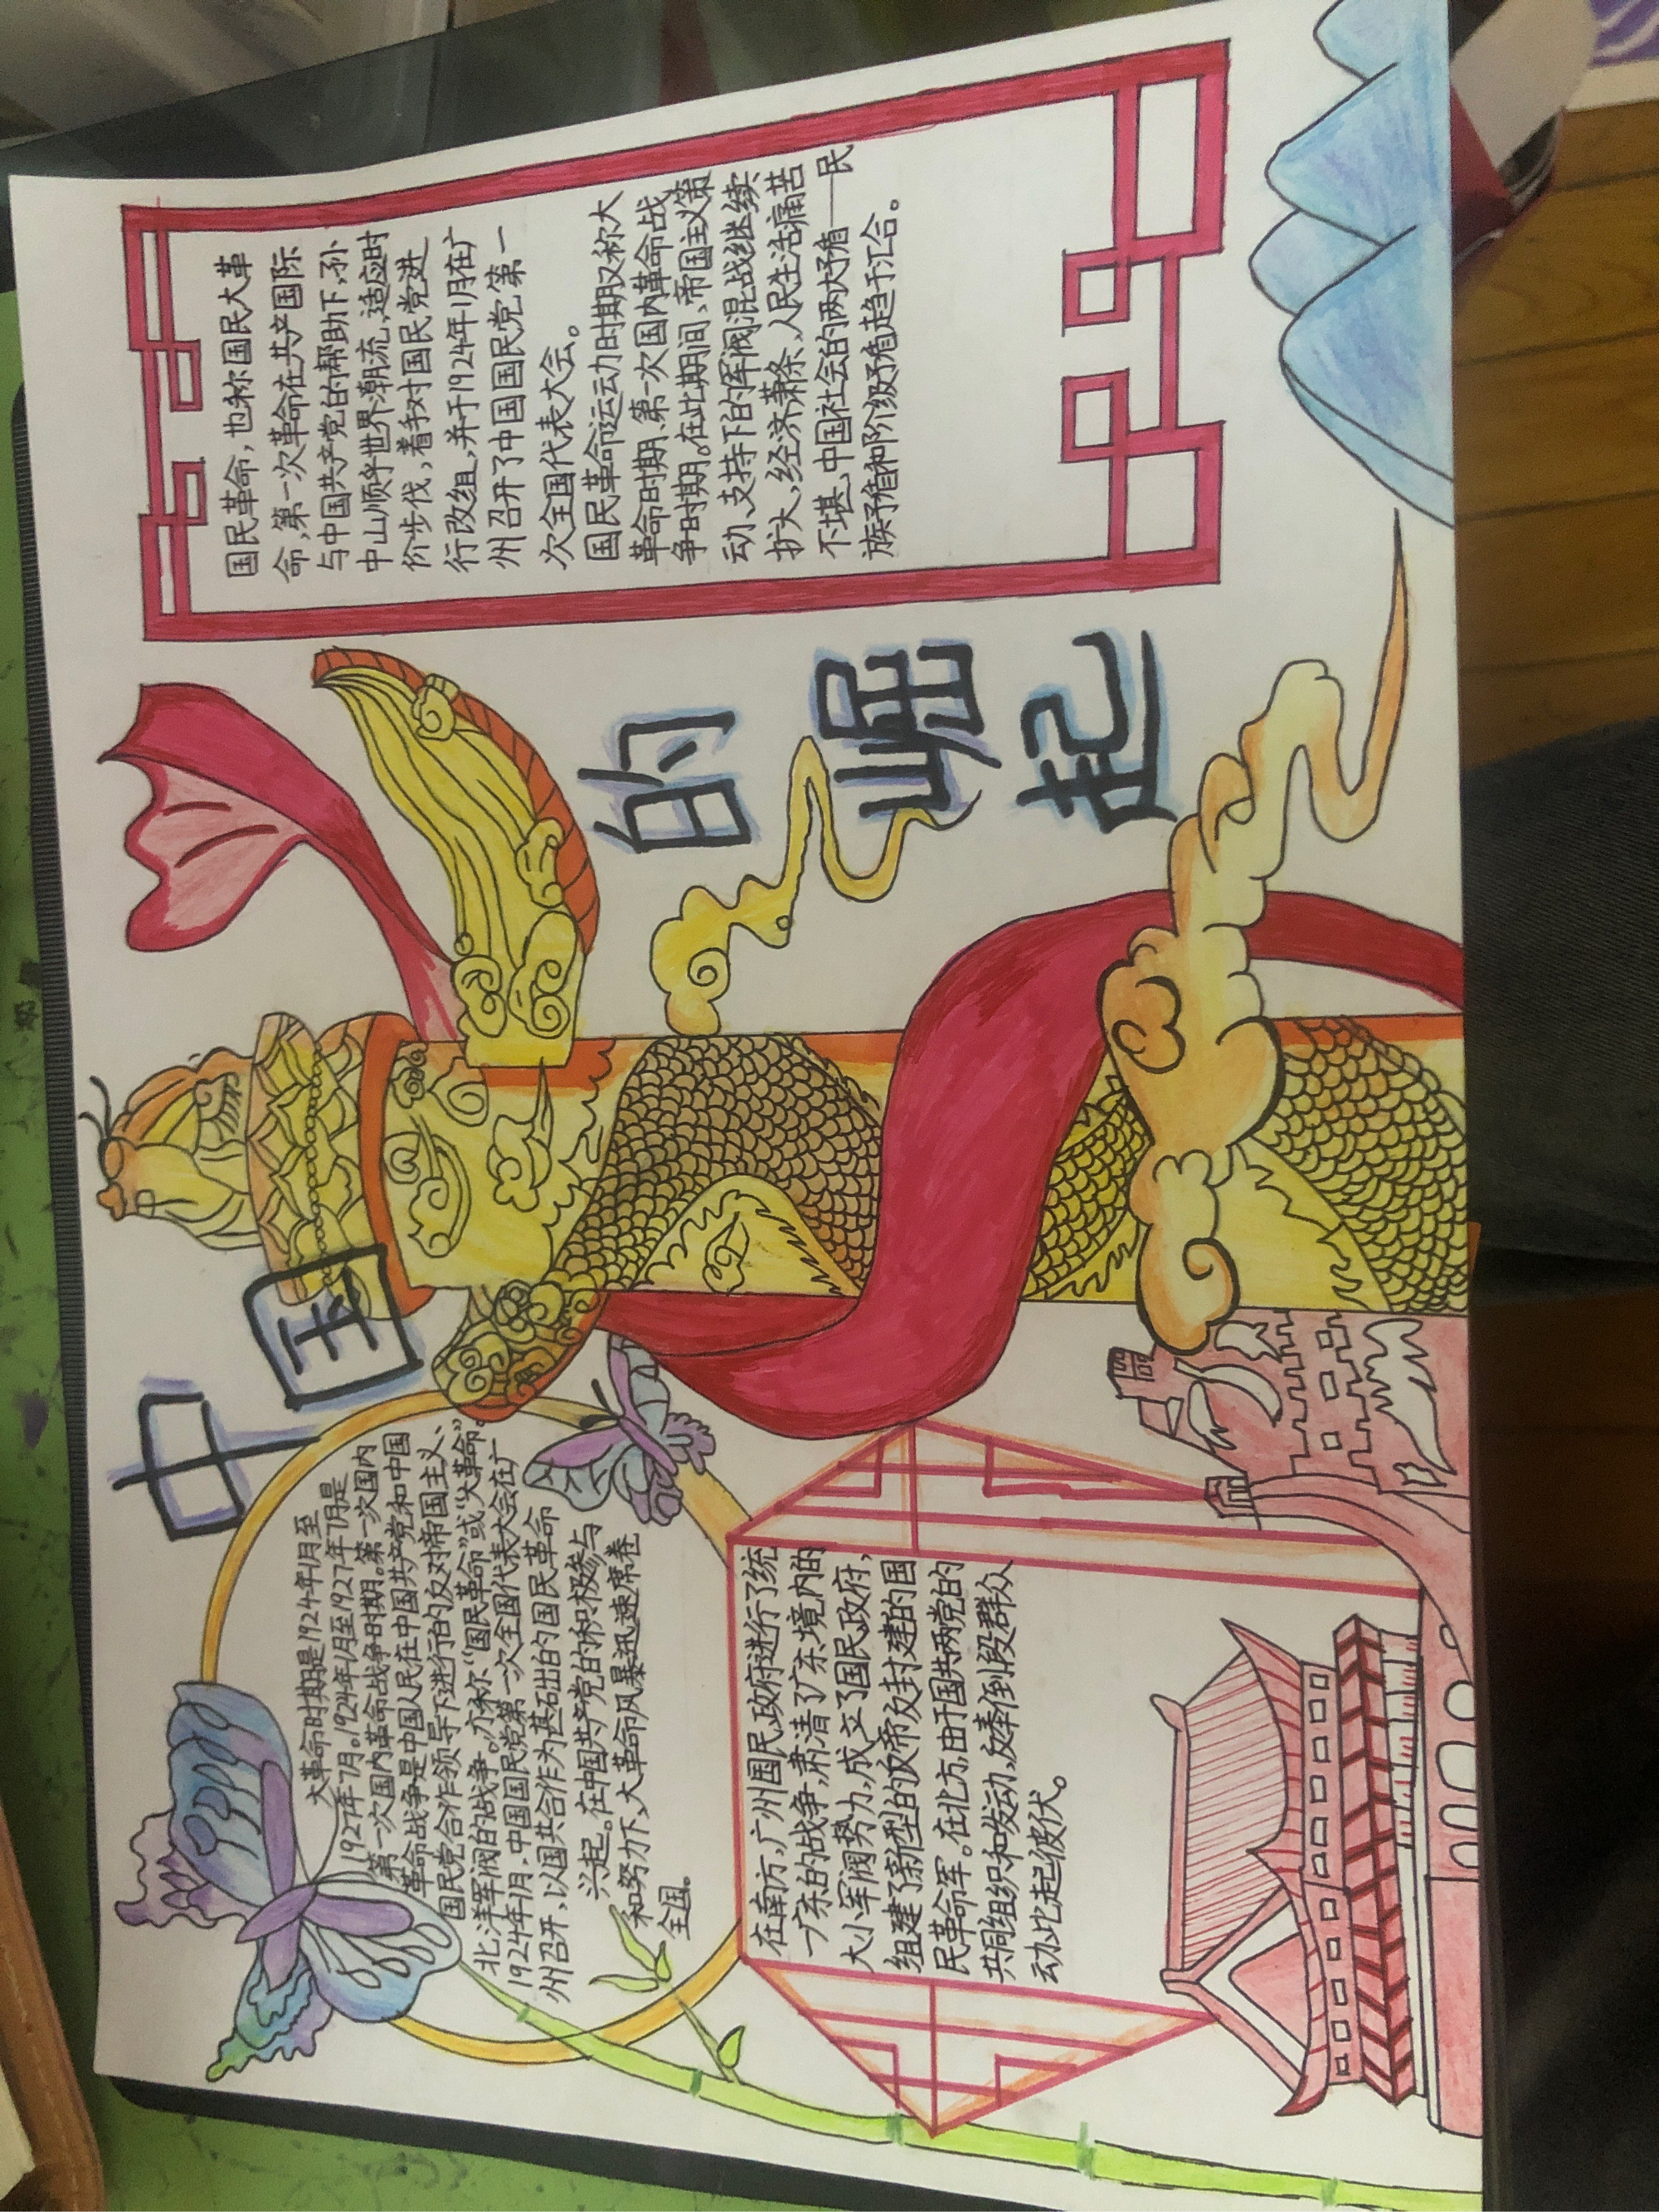 中国
的崛起
大革命时期是1924年1月至
1927年7月。1924年1月至1927年7月是
第一次国内革命战争时期。第一次国内
革命战争是中国人民在中国共产党和中国
国民党合作领导下进行的反对帝国主义、
北洋军阀的战争。亦称“国民革命”或“大革命”。
1924年1月，中国国民党第一次全国代表大会在广
州召开，以国共合作为基础出的国民革命
兴起。在中国共产党的积极参与
和努力下、大革命风暴迅速席卷
全国。
在南方，广州国民政府进行了统
一广东的战争，肃清了广东境内的
大小军阀势力，成立了国民政府，
组建了新型的反帝反封建的国
民革命军。在北方，由于国共两党的
共同组织和发动，反奉倒段群众
动比起彼伏。
国民革命，也称国民大革
命，第一次革命在共产国际
与中国共产党的帮助下，孙
中山顺乎世界潮流，适应时
价步伐，着手对国民党进
行改组，并于1924年1月在广
州召开了中国国民党第一
次全国代表大会。
国民革命运动时期又称大
革命时期、第一次国内革命战
争时期。在此期间、帝国主义策
动、支持下的军阀混战继续
扩大，经济萧条、人民生活痛苦
不堪，中国社会的两大矛盾——民
族矛盾和阶级矛盾趋于汇合。